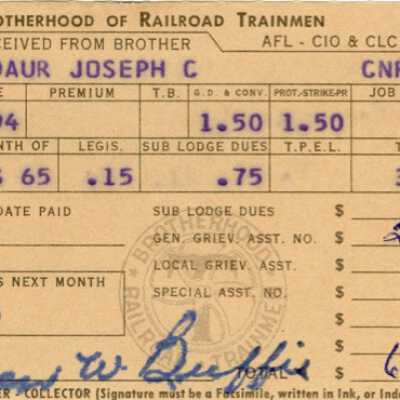 OTHERHOOD OF RAILROAD TRAINMEN
CEIVED FROM BROTHER AFL - CIO & CLC
DAUR JOSEPH C CNR
PREMIUM T.B. G.D. & CONV. PROT.-STRIKE-PR JOB
94 1.50 1.50
NTH OF LEGIS. SUB LODGE DUES T.P.E.L.
65 .15 .75
DATE PAID SUB LODGE DUES $
GEN. GRIEV. ASST. NO. $
LOCAL GRIEV. ASST. $
S NEXT MONTH SPECIAL ASST. NO. $
$
BROTHERHOOD RAILROAD TRAINMEN
W. Buffie TOTAL $ 6
ER - COLLECTOR (Signature must be a Facsimile, written in Ink, or Inde